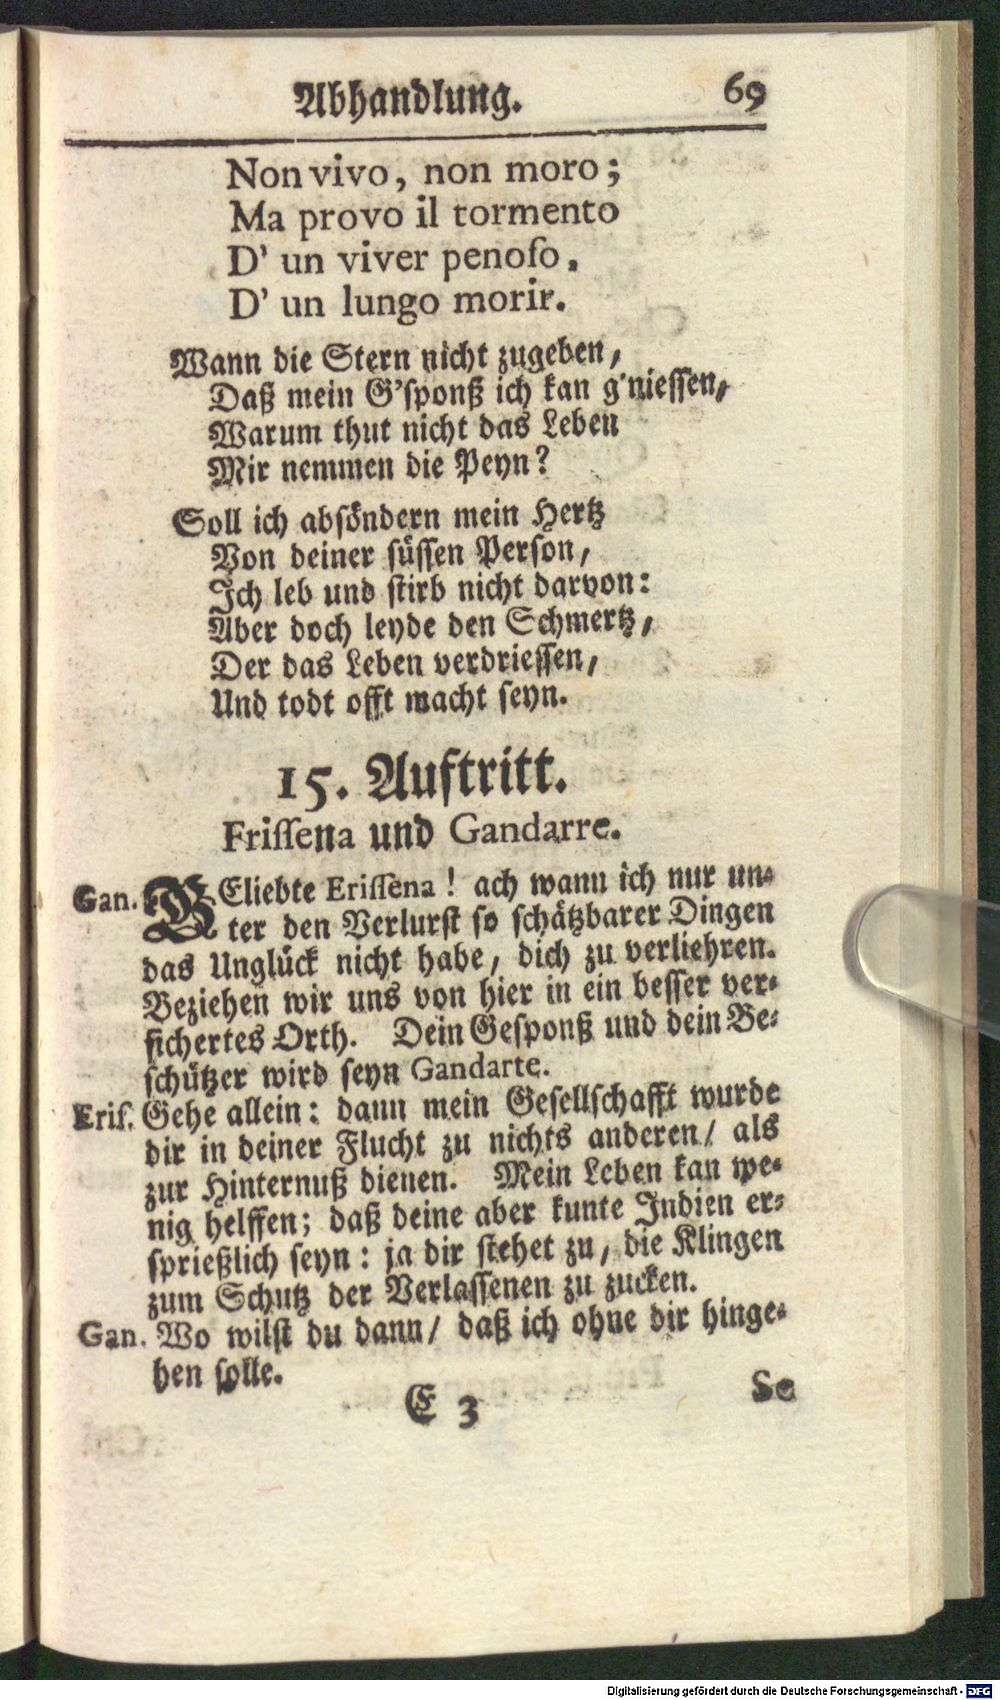 Abhandlung. 69
Non vivo, non moro;
Ma provo il tormento
D' un viver penoſo.
D' un lungo morir.
Wann die Stern nicht zugeben,
Daß mein G'ſponß ich kan g'nieſſen,
Warum thut nicht das Leben
Mir nemmen die Peyn?
Soll ich abſöndern mein Hertz
Von deiner ſüſſen Perſon,
Ich leb und ſtirb nicht darvon:
Aber doch leyde den Schmertz,
Der das Leben verdrieſſen,
Und todt offt macht ſeyn.
15. Auftritt.
Friſſena und Gandarre.
Gan. GEliebte Eriſſena! ach wann ich nur un-
ter den Verlurſt ſo ſchätzbarer Dingen
das Unglück nicht habe, dich zu verliehren.
Beziehen wir uns von hier in ein beſſer ver-
ſichertes Orth. Dein Geſponß und dein Be-
ſchützer wird ſeyn Gandarte.
Eriſ. Gehe allein: dann mein Geſellſchafft wurde
dir in deiner Flucht zu nichts anderen/ als
zur Hinternuß dienen. Mein Leben kan we-
nig helffen; daß deine aber kunte Indien er-
ſprießlich ſeyn: ja dir ſtehet zu, die Klingen
zum Schutz der Verlaſſenen zu zucken.
Gan. Wo wilſt du dann/ daß ich ohne dir hinge-
hen ſolle.
E 3 So
Digitalisierung gefördert durch die Deutsche Forschungsgemeinschaft - DFG